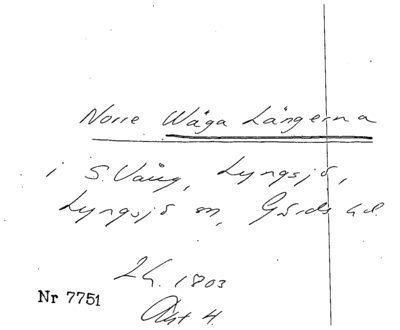 Norre Wåga Längorna
i S. Vång, Lyngsjö,
Lyngsjö sn, Gärds hd.
24. 1803
Nr 7751
Akt 4